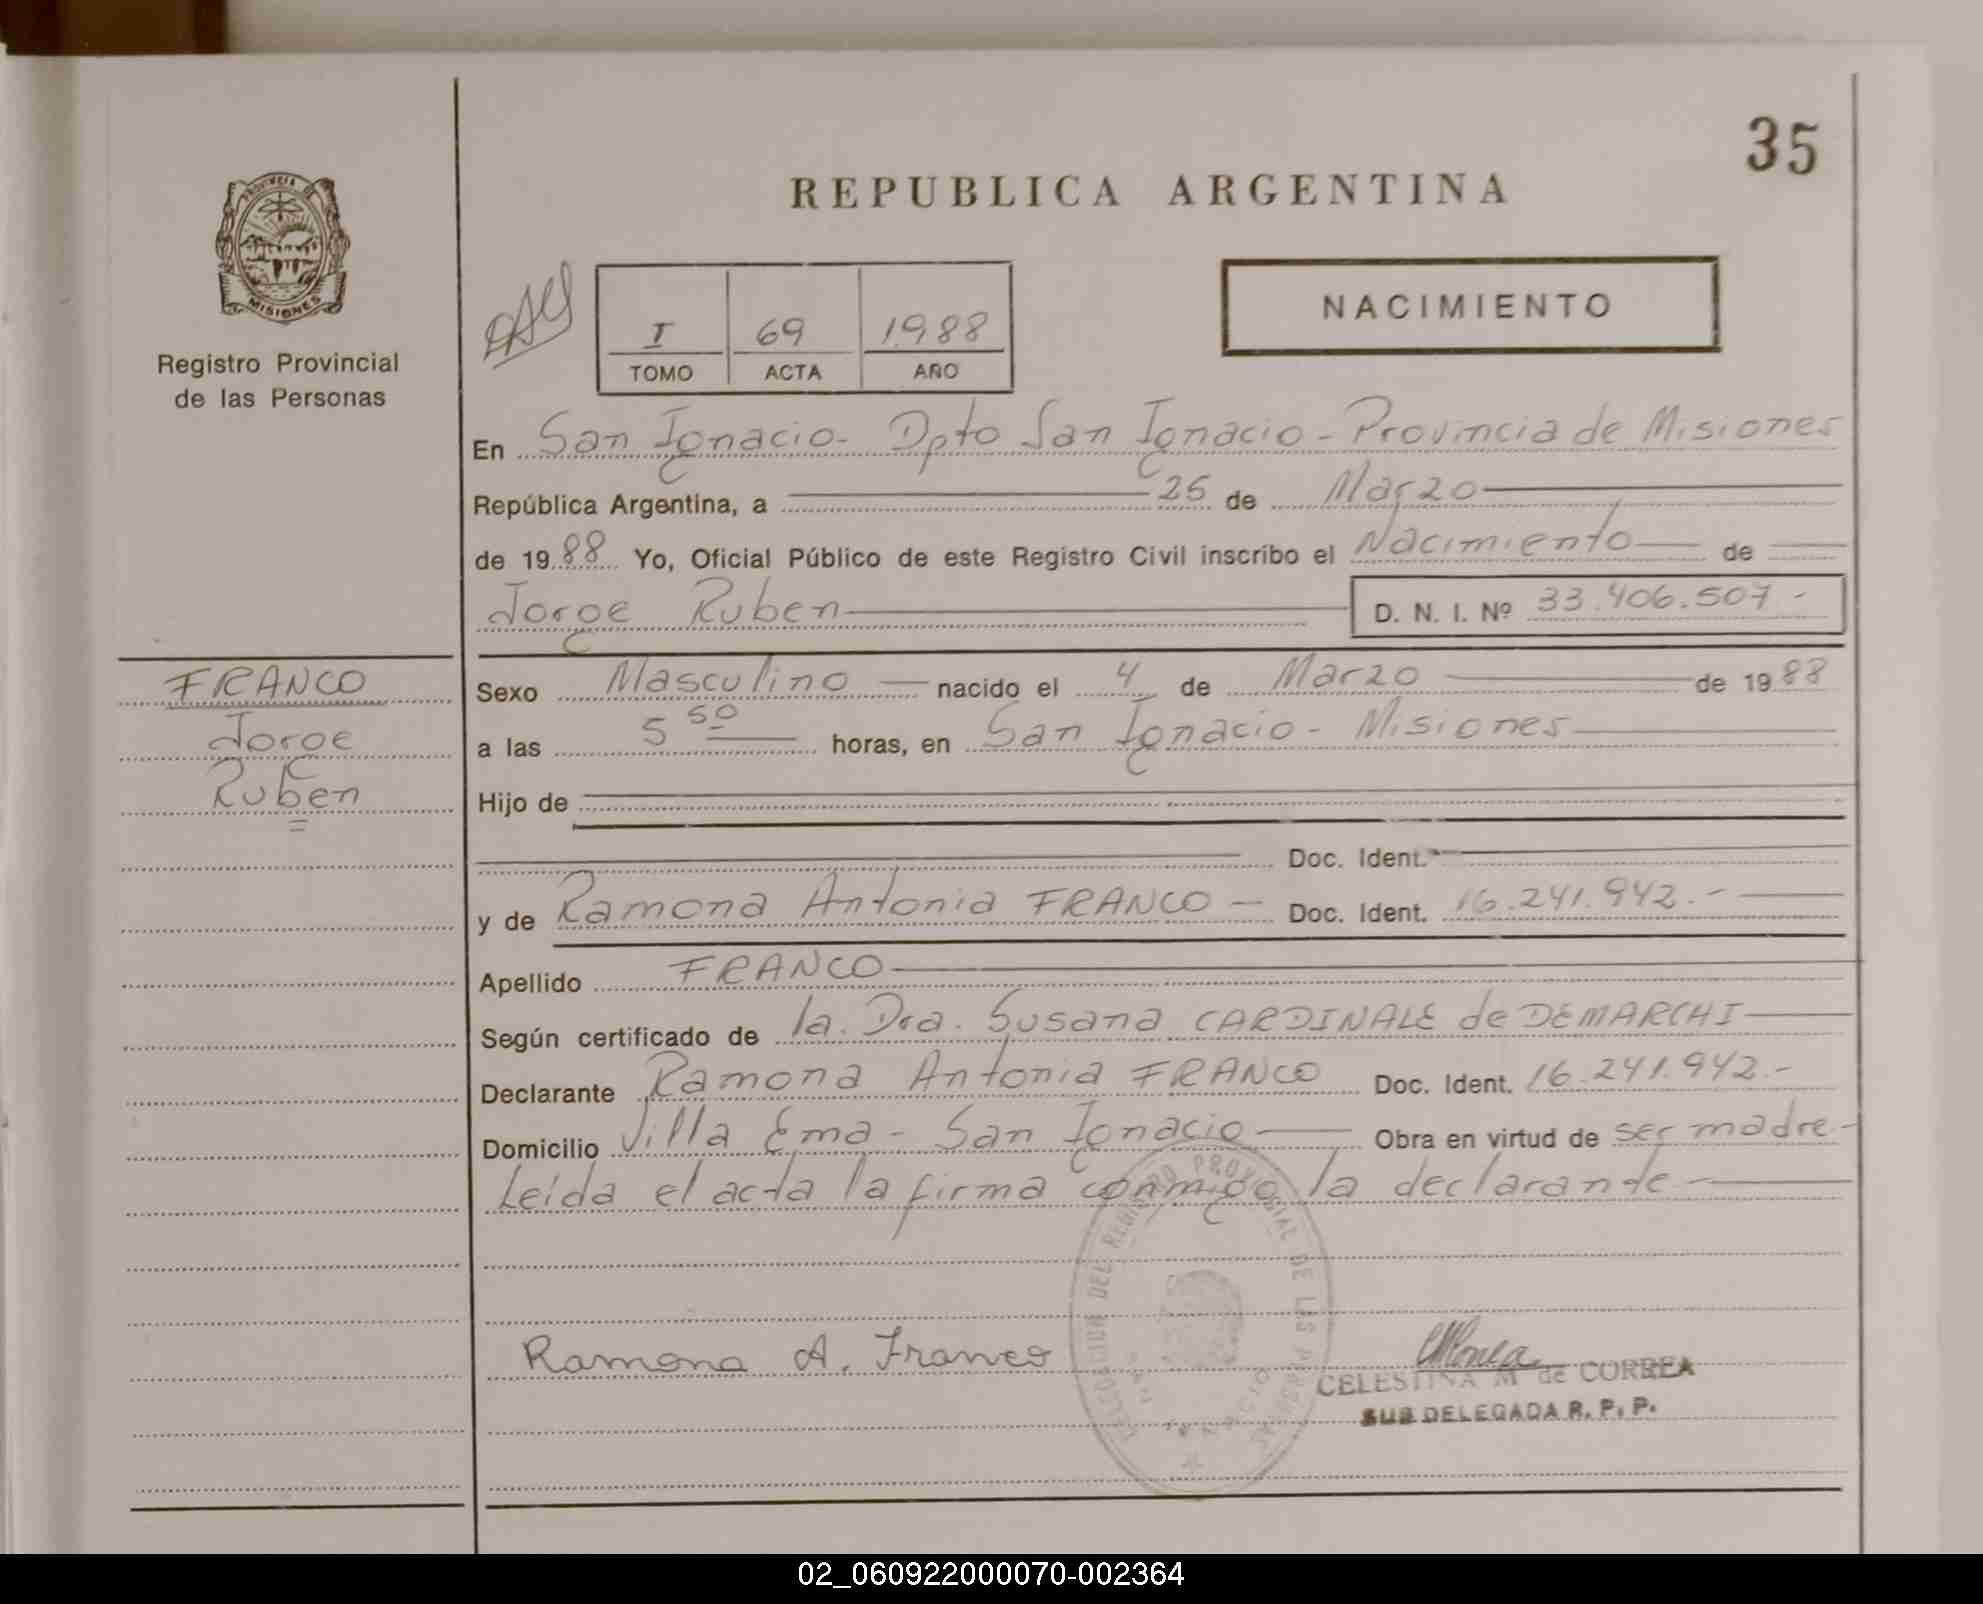 35
REPUBLICA ARGENTINA
PROVINCIA DE
MISIONES
Registro Provincial
de las Personas
NACIMIENTO
I 69 1988
TOMO ACTA AÑO
En San Ignacio - Dpto San Ignacio - Provincia de Misiones
República Argentina, a 25 de Marzo
de 1988 Yo, Oficial Público de este Registro Civil inscribo el Nacimiento de
Jorge Ruben D. N. I. Nº 33.406.507 -
FRANCO
Jorge
Ruben
Sexo Masculino nacido el 4 de Marzo de 1988
a las 5 50 horas, en San Ignacio - Misiones
Hijo de
Doc. Ident.
y de Ramona Antonia FRANCO - Doc. Ident. 16.241.942.-
Apellido FRANCO
Según certificado de la. Dra. Susana CARDINALE de DEMARCHI
Declarante Ramona Antonia FRANCO Doc. Ident. 16.241.942.-
Domicilio Villa Ema - San Ignacio Obra en virtud de ser madre -
Leída el acta la firma conmigo la declarante
DELEGACION DEL REGISTRO PROVINCIAL DE LAS PERSONAS
Ramona A. Franco
CELESTINA M de CORREA
SUB DELEGADA R. P. P.
02_060922000070-002364